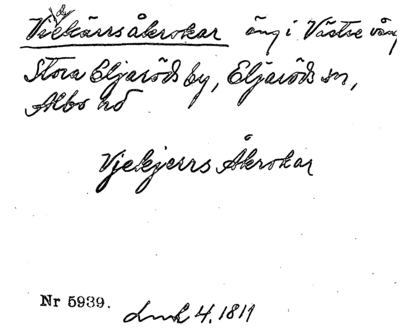 Viekärrsåkrokar äng i Västse vång
Stora Eljaröds by, Eljaröds sn,
Albo hd
Vjekjerrs Åkrokar
Nr 5939. Lmk 4. 1811